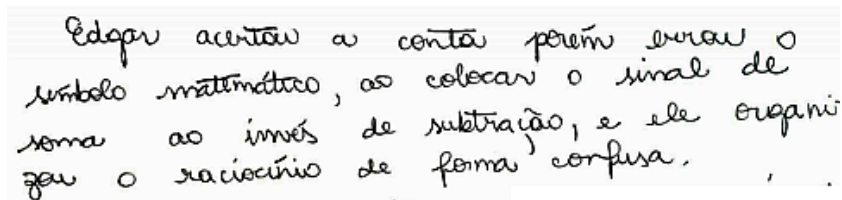 Edgar acertou a conta porém errou o
símbolo matemático, ao colocar o sinal de
soma ao invés de subtração, e ele organi
zou o raciocínio de forma confusa.